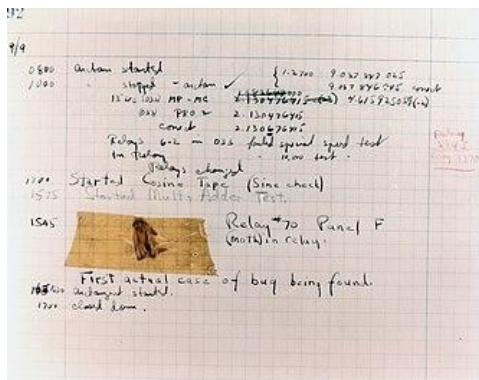 92
9/9
0800 antan started
1000 " stopped - antan ✓ { 1.2700 9.037 847 025
9.037 846 995 correct
13"uc (032) MP - MC 4.615925059(-2)
(033) PRO 2 2.130476415
correct 2.130676415
Relays 6-2 in 033 failed special speed test
in relay " 10,000 test.
Relays changed
1700 Started Cosine Tape (Sine check)
1525 Started Mult+ Adder Test.
1545 Relay #70 Panel F
(moth) in relay.
First actual case of bug being found.
antangent started.
1700 closed down.
Relay